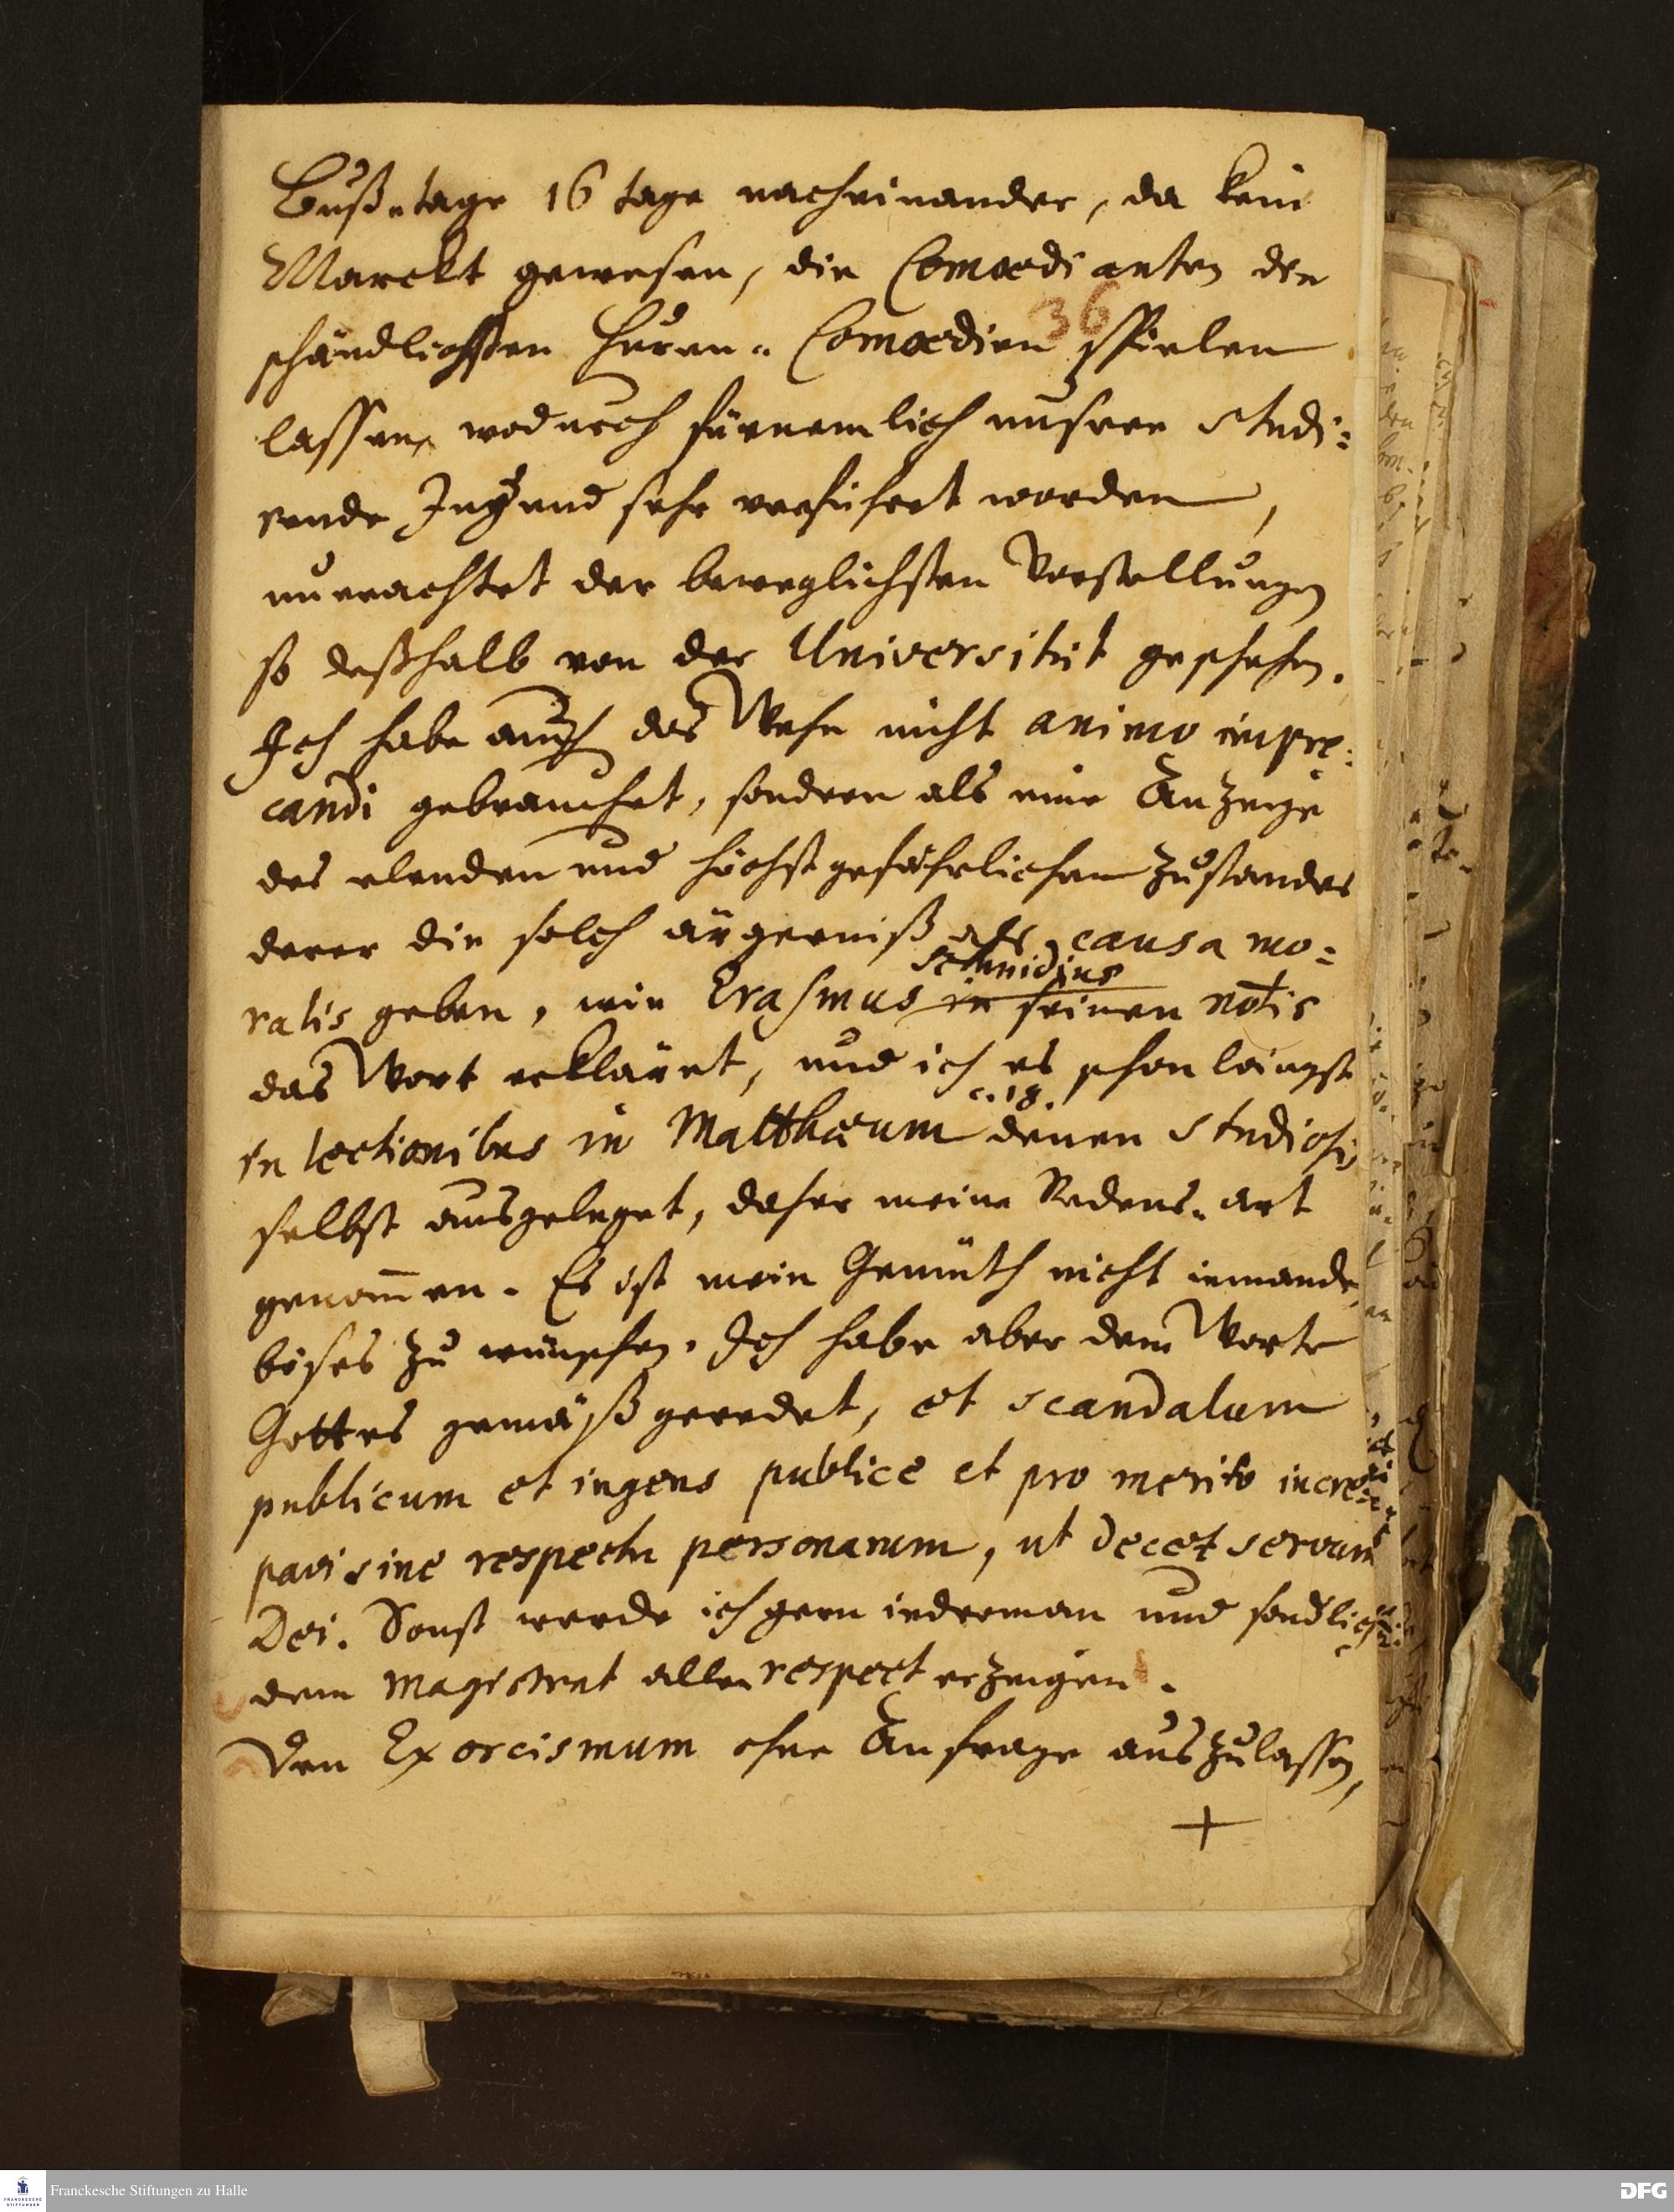 Buß-tage 16 tage nacheinander, da kein
Marckt gewesen, die Comoedianten die
36
schändlichsten Huren-Comoedien spielen
lassen, wodurch fürnemlich unsere Studi=
rende Jugend sehr verführet worden,
unerachtet der beweglichsten Vorstellungen
so deßhalb von der Universität geschehen.
Ich habe auch das Wehe nicht animo impre=
candi gebrauchet, sondern als eine Anzeige
des elenden und höchst gefährlichen Zustandes
derer die solch ärgerniß als causa mo=
Schmidius
ralis geben, wie Erasmus in seinen notis
das Wort erkläret, und ich es schon längst
c. 18.
in lectionibus in Matthæum denen Studiosis
selbst ausgeleget, daher meine Redens-art
genom̄en. Es ist mein Gemüth nicht iemande
böses zu wünschen. Ich habe aber dem Worte
Gottes gemäß geredet, et scandalum
publicum et ingens publice et pro merito incre=
pavi sine respectu personarum, ut decet servum
Dei. Sonst werde ich gern iederman und sonderlich
dem Magistrat allen respect erzeigen.
Den Exorcismum ohne Anfrage auszulassen,
+
Franckesche Stiftungen zu Halle
DFG